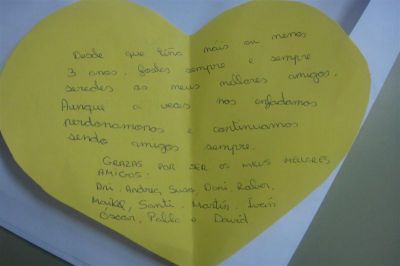 Desde que tiña máis ou menos
3 anos. fodes sempre e sempre
seredes os meus mellores amigos.
Aunque a veces nos enfadamos
perdonamonos e continuamos
sendo amigos sempre.
GRAZAS POR SER OS MEUS MELLORES
AMIGOS:
Ari, Andrea, Susa, Dani,
Maikel, Santi, Martín, Iván
Óscar, Pablo e David